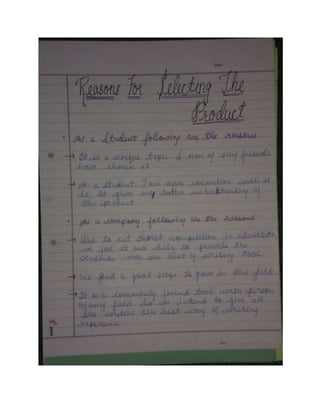 Reasons For Selecting The
Product
• As a Student following are the reasons
→ It is a unique topic & non of my friends
have chosen it
→ As a student I am more conscious with it
So, It give my better understanding of
the product
• As a company following are the reasons
→ Due to cut throat competition in education
we feel it our duty to provide the
students with the best of writing tool
→ We find a great scope to grow in this field
→ It is a commonly found tool with person
of any field So we intend to give all
the writers the best way of writing
experience